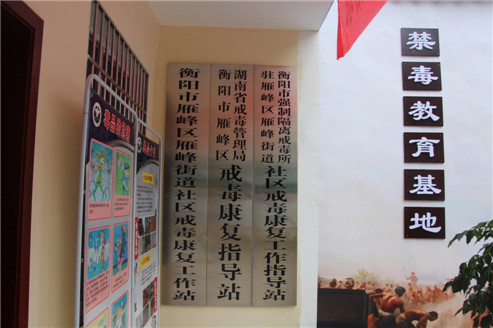 衡阳市雁峰区雁峰街道社区戒毒康复工作站
湖南省戒毒管理局
衡阳市雁峰区
戒毒康复指导站
衡阳市强制隔离戒毒所
驻雁峰区雁峰街道
社区戒毒工作指导站
禁毒教育基地